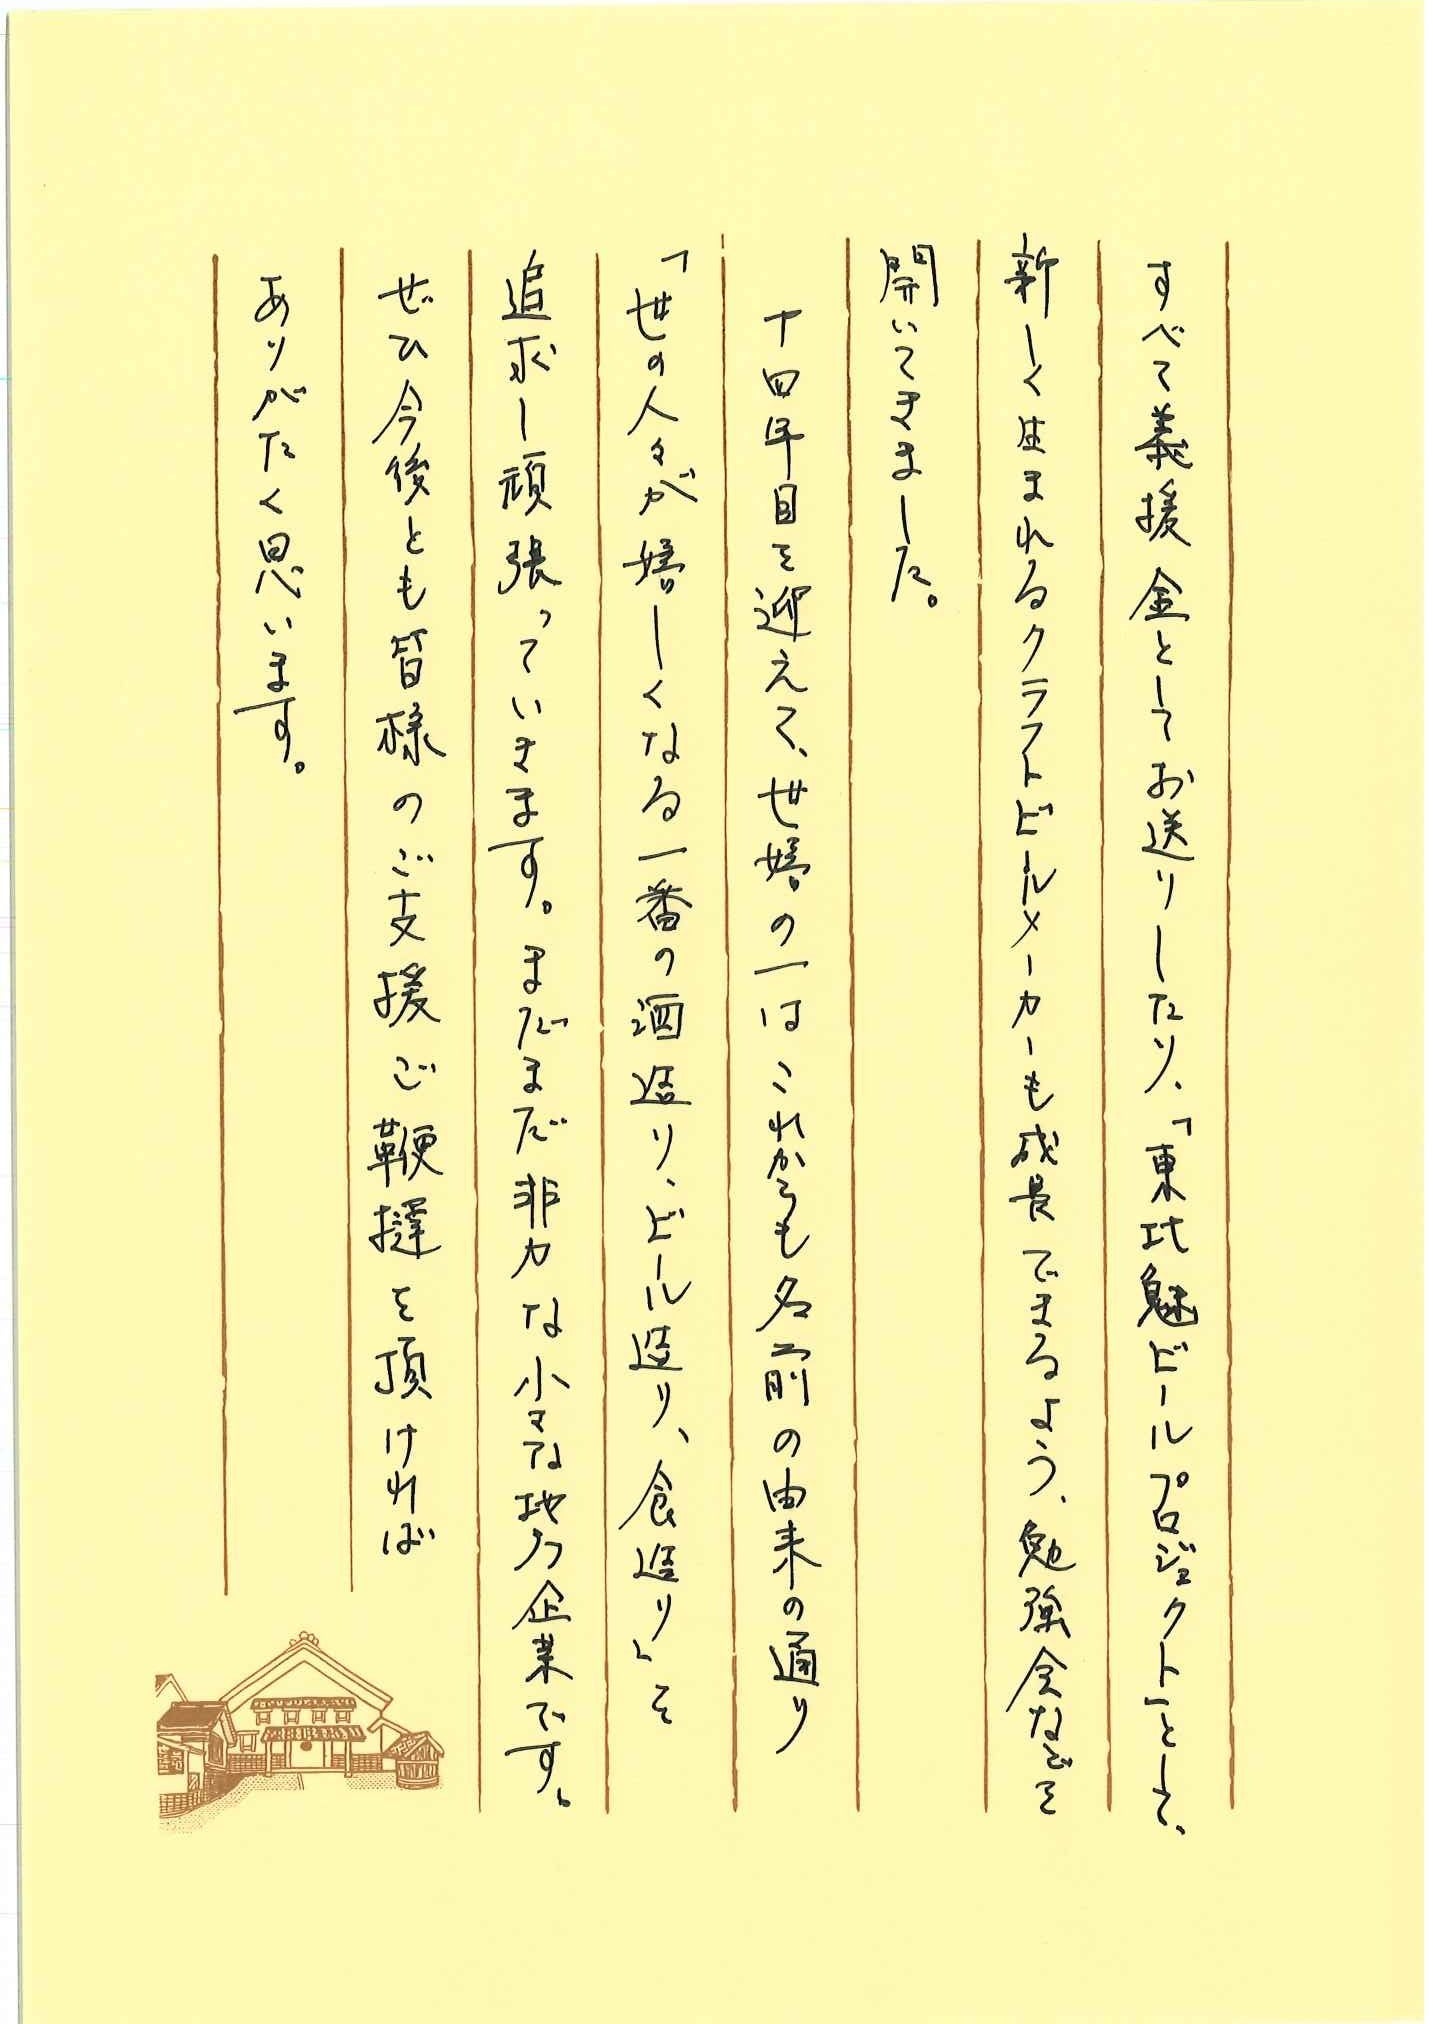 すべて義援金としてお送りしたり、「東北魅ビールプロジェクト」として、
新しく生まれるクラフトビールメーカーも成長できるよう、勉強会などを
開いてきました。
十四年目を迎えて、世嬉の一はこれからも名前の由来の通り
「世の人々が嬉しくなる一番の酒造り、ビール造り、食造り」を
追求し頑張っていきます。まだまだ非力な小さな地方企業です。
ぜひ今後とも皆様のご支援ご鞭撻を頂ければ
ありがたく思います。